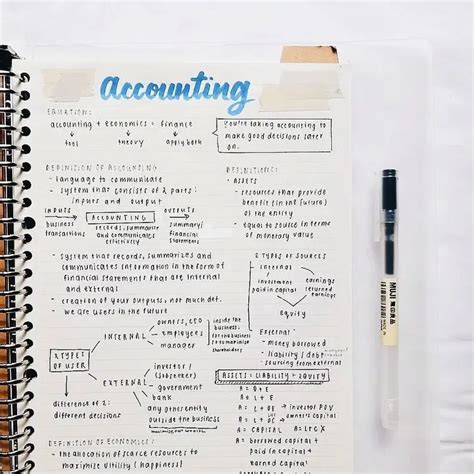 accounting
EQUATION:
accounting + economics = finance
tool theory apply both
you're taking accounting to
make good decisions later
on.
DEFINITION OF ACCOUNTING
- language to communicate
- system that consists of 2 parts:
inputs and output
INPUTS ACCOUNTING OUTPUTS
business
transactions
records, summarizes
and communicates
effectively
summary/
financial
statements
- system that records, summarizes and
communicates information in the form of
financial statements that are internal
and external
- creation of your outputs, not much diff.
we are users in the future
INTERNAL
owners, CEO
employees
manager
inside the
business:
for
business
to maximize
shareholders
2 TYPES
OF USER
EXTERNAL
investor /
government
bank
any other entity
outside the business
difference of 2:
different decisions
DEFINITION OF ECONOMICS:
- the allocation of scarce resources to
maximize utility (happiness)
DEFINITIONS:
- ASSETS
- resources that provide
benefit (in the future)
of the entity
- equal to source in terms
of monetary value
2 TYPES OF SOURCES
internal
investment
paid in capital
earnings
(retained
earnings)
equity
External
- money borrowed
- liability / debt
sourcing from external
ASSETS = LIABILITY + EQUITY
A = L + OE → investor POV
A = L + OC → owner's capital
A = CAPITAL
A = borrowed capital +
paid in capital +
earned capital
MUJI 無印良品